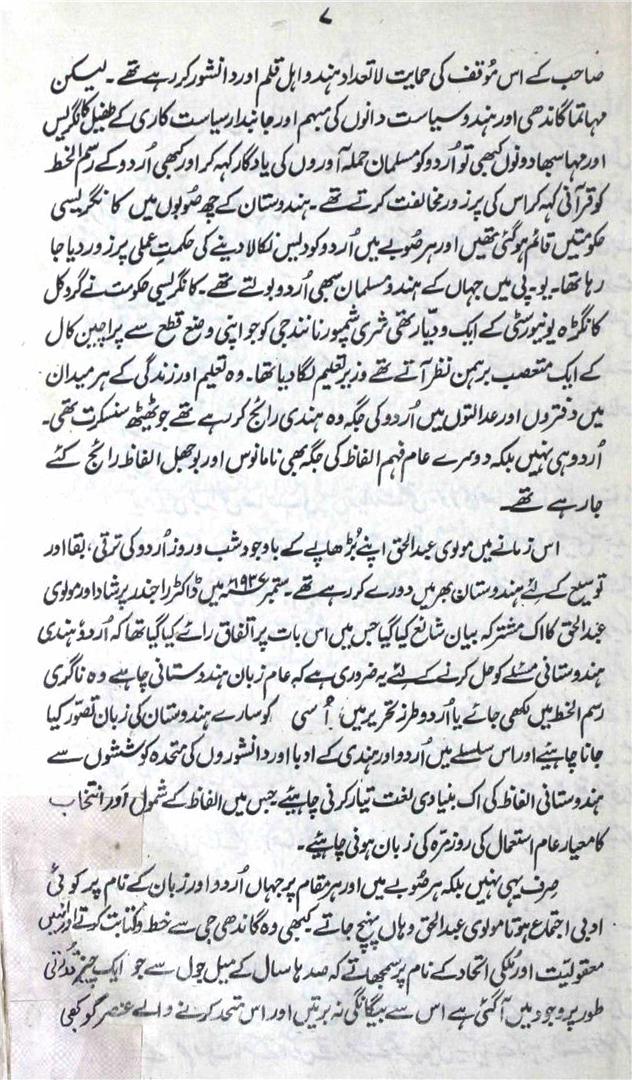 ۷
صاحب کے اس مؤقف کی حمایت لاتعداد ہندو اہل قلم اور دانشور کر رہے تھے۔ لیکن
مہاتما گاندھی اور ہندو سیاست دانوں کی مبہم اور جانبدار سیاست کاری کے طفیل کانگریس
اور مہا سبھا دونوں کبھی تو اُردو کو مسلمان حملہ آوروں کی یادگار کہہ کر اور کبھی اُردو کے رسم الخط
کو قرآنی کہہ کر اس کی پرزور مخالفت کرتے تھے۔ ہندوستان کے چھ صوبوں میں کانگریسی
حکومتیں قائم ہو گئی تھیں اور ہر صوبے میں اُردو کو دیس نکالا دینے کی حکمت عملی پر زور دیا جا
رہا تھا۔ یو۔پی میں جہاں کے ہندو مسلمان سبھی اُردو بولتے تھے۔ کانگریسی حکومت نے گروکل
کانگڑہ یونیورسٹی کے ایک ودیارتھی شری شمپورنا نند جی کو جو اپنی وضع قطع سے پراچین کال
کے ایک متعصب برہمن نظر آتے تھے وزیر تعلیم لگا دیا تھا۔ وہ تعلیم اور زندگی کے ہر میدان
میں دفتروں اور عدالتوں میں اُردو کی جگہ وہ ہندی رائج کر رہے تھے جو ٹھیٹھ سنسکرت تھی۔
اُردو ہی نہیں بلکہ دوسرے عام فہم الفاظ کی جگہ بھی نامانوس اور بوجھل الفاظ رائج کئے
جا رہے تھے۔
اس زمانے میں مولوی عبدالحق اپنے بُڑھاپے کے باوجود شب و روز اُردو کی ترقی، بقا اور
توسیع کے لئے ہندوستان بھر میں دورے کر رہے تھے۔ ستمبر ۱۹۳۷ء میں ڈاکٹر راجندر پرشاد اور مولوی
عبدالحق کا اک مشترکہ بیان شائع کیا گیا جس میں اس بات پر اتفاق رائے کیا گیا تھا کہ اُردو ہندی
ہندوستانی مسئلے کو حل کرنے کے لئے یہ ضروری ہے کہ عام زبان ہندوستانی چاہے وہ ناگری
رسم الخط میں لکھی جائے یا اُردو طرز تحریر میں اُسی کو سارے ہندوستان کی زبان تصوّر کیا
جانا چاہئیے اور اس سلسلے میں اُردو اور ہندی کے ادبا اور دانشوروں کی متحدہ کوششوں سے
ہندوستانی الفاظ کی اک بنیادی لغت تیار کرنی چاہئیے جس میں الفاظ کے شمول اور انتخاب
کا معیار عام استعمال کی روزمرّہ کی زبان ہونی چاہئیے۔
صرف یہی نہیں بلکہ ہر صوبے میں اور ہر مقام پر جہاں اُردو اور زبان کے نام پر کوئی
ادبی اجتماع ہوتا مولوی عبدالحق وہاں پہنچ جاتے۔ کبھی وہ گاندھی جی سے خط و کتابت کرتے اور انہیں
معقولیّت اور مُلکی اتحاد کے نام پر سمجھاتے کہ صدہا سال کے میل جول سے جو ایک چیز قدرتی
طور پر وجود میں آ گئی ہے اس سے بیگانگی نہ برتیں اور اس متحد کرنے والے عنصر کو کبھی